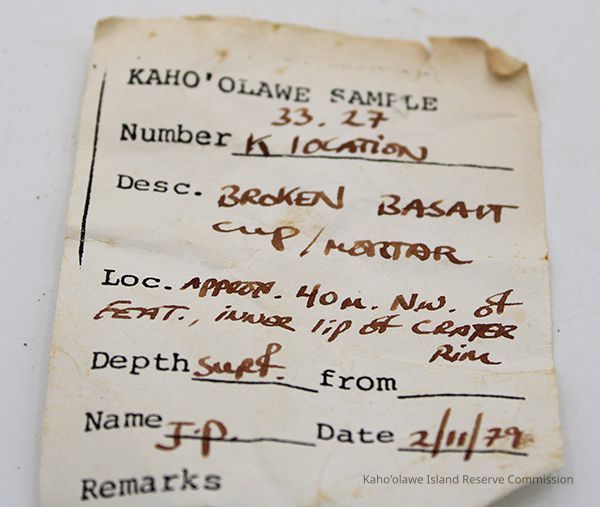 KAHO'OLAWE SAMPLE
33.27
Number K LOCATION
Desc. BROKEN BASALT
CUP/MORTAR
Loc. APPROX. 40M. NW. of
FEAT., INNER lip of CRATER
RIM
Depth SURF. from
Name J.P. Date 2/11/79
Remarks
Kaho'olawe Island Reserve Commission